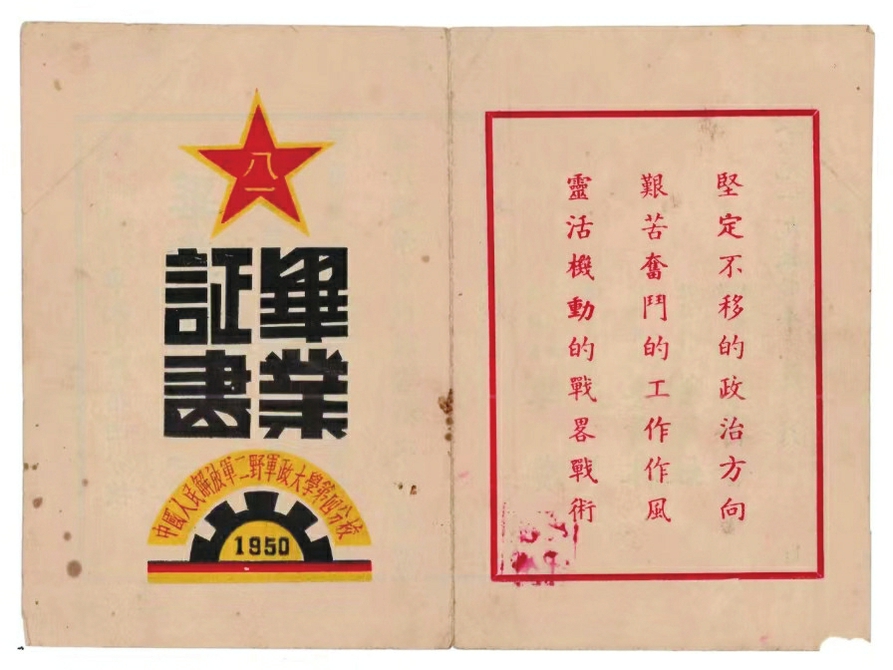 八一
畢業
証書
中國人民解放軍二野軍政大學第四分校
1950
堅定不移的政治方向
艱苦奮鬥的工作作風
靈活機動的戰畧戰術